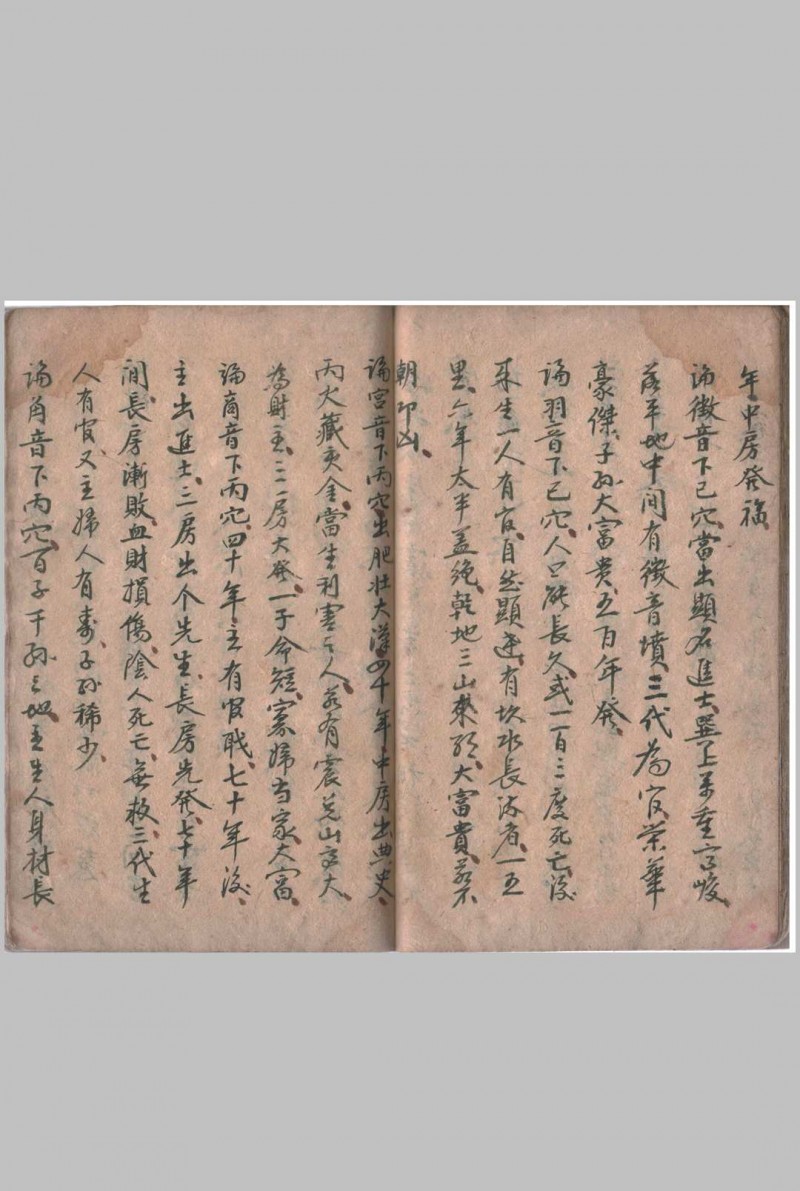 年中房發福
論徵音下已穴當出顯名進士巽上萬重高峻
落平地中间有徵音墳三代為官荣華
豪傑子孫大富贵五百年發
論羽音下已穴人口能長久或一百二度死亡後
來生一人有官自然顯達有坎水長流者一五
里六年太半蓋绝乾地三山來大富貴若不
朝即凶
論宮音下丙穴出肥壮大漢四十年中房出典史
丙火藏庚金當生利害之人若有震兑山高大
為財主二房大發一子命短寡婦当家大富
論商音下丙穴四十年主有官职七十年後
主出進士三房出个先生長房先發七十年
间長房漸敗血財損傷陰人死亡無救三代生
人有官又主婦人有壽子孫稀少
論角音下丙穴百子千孫之地主生人身材長